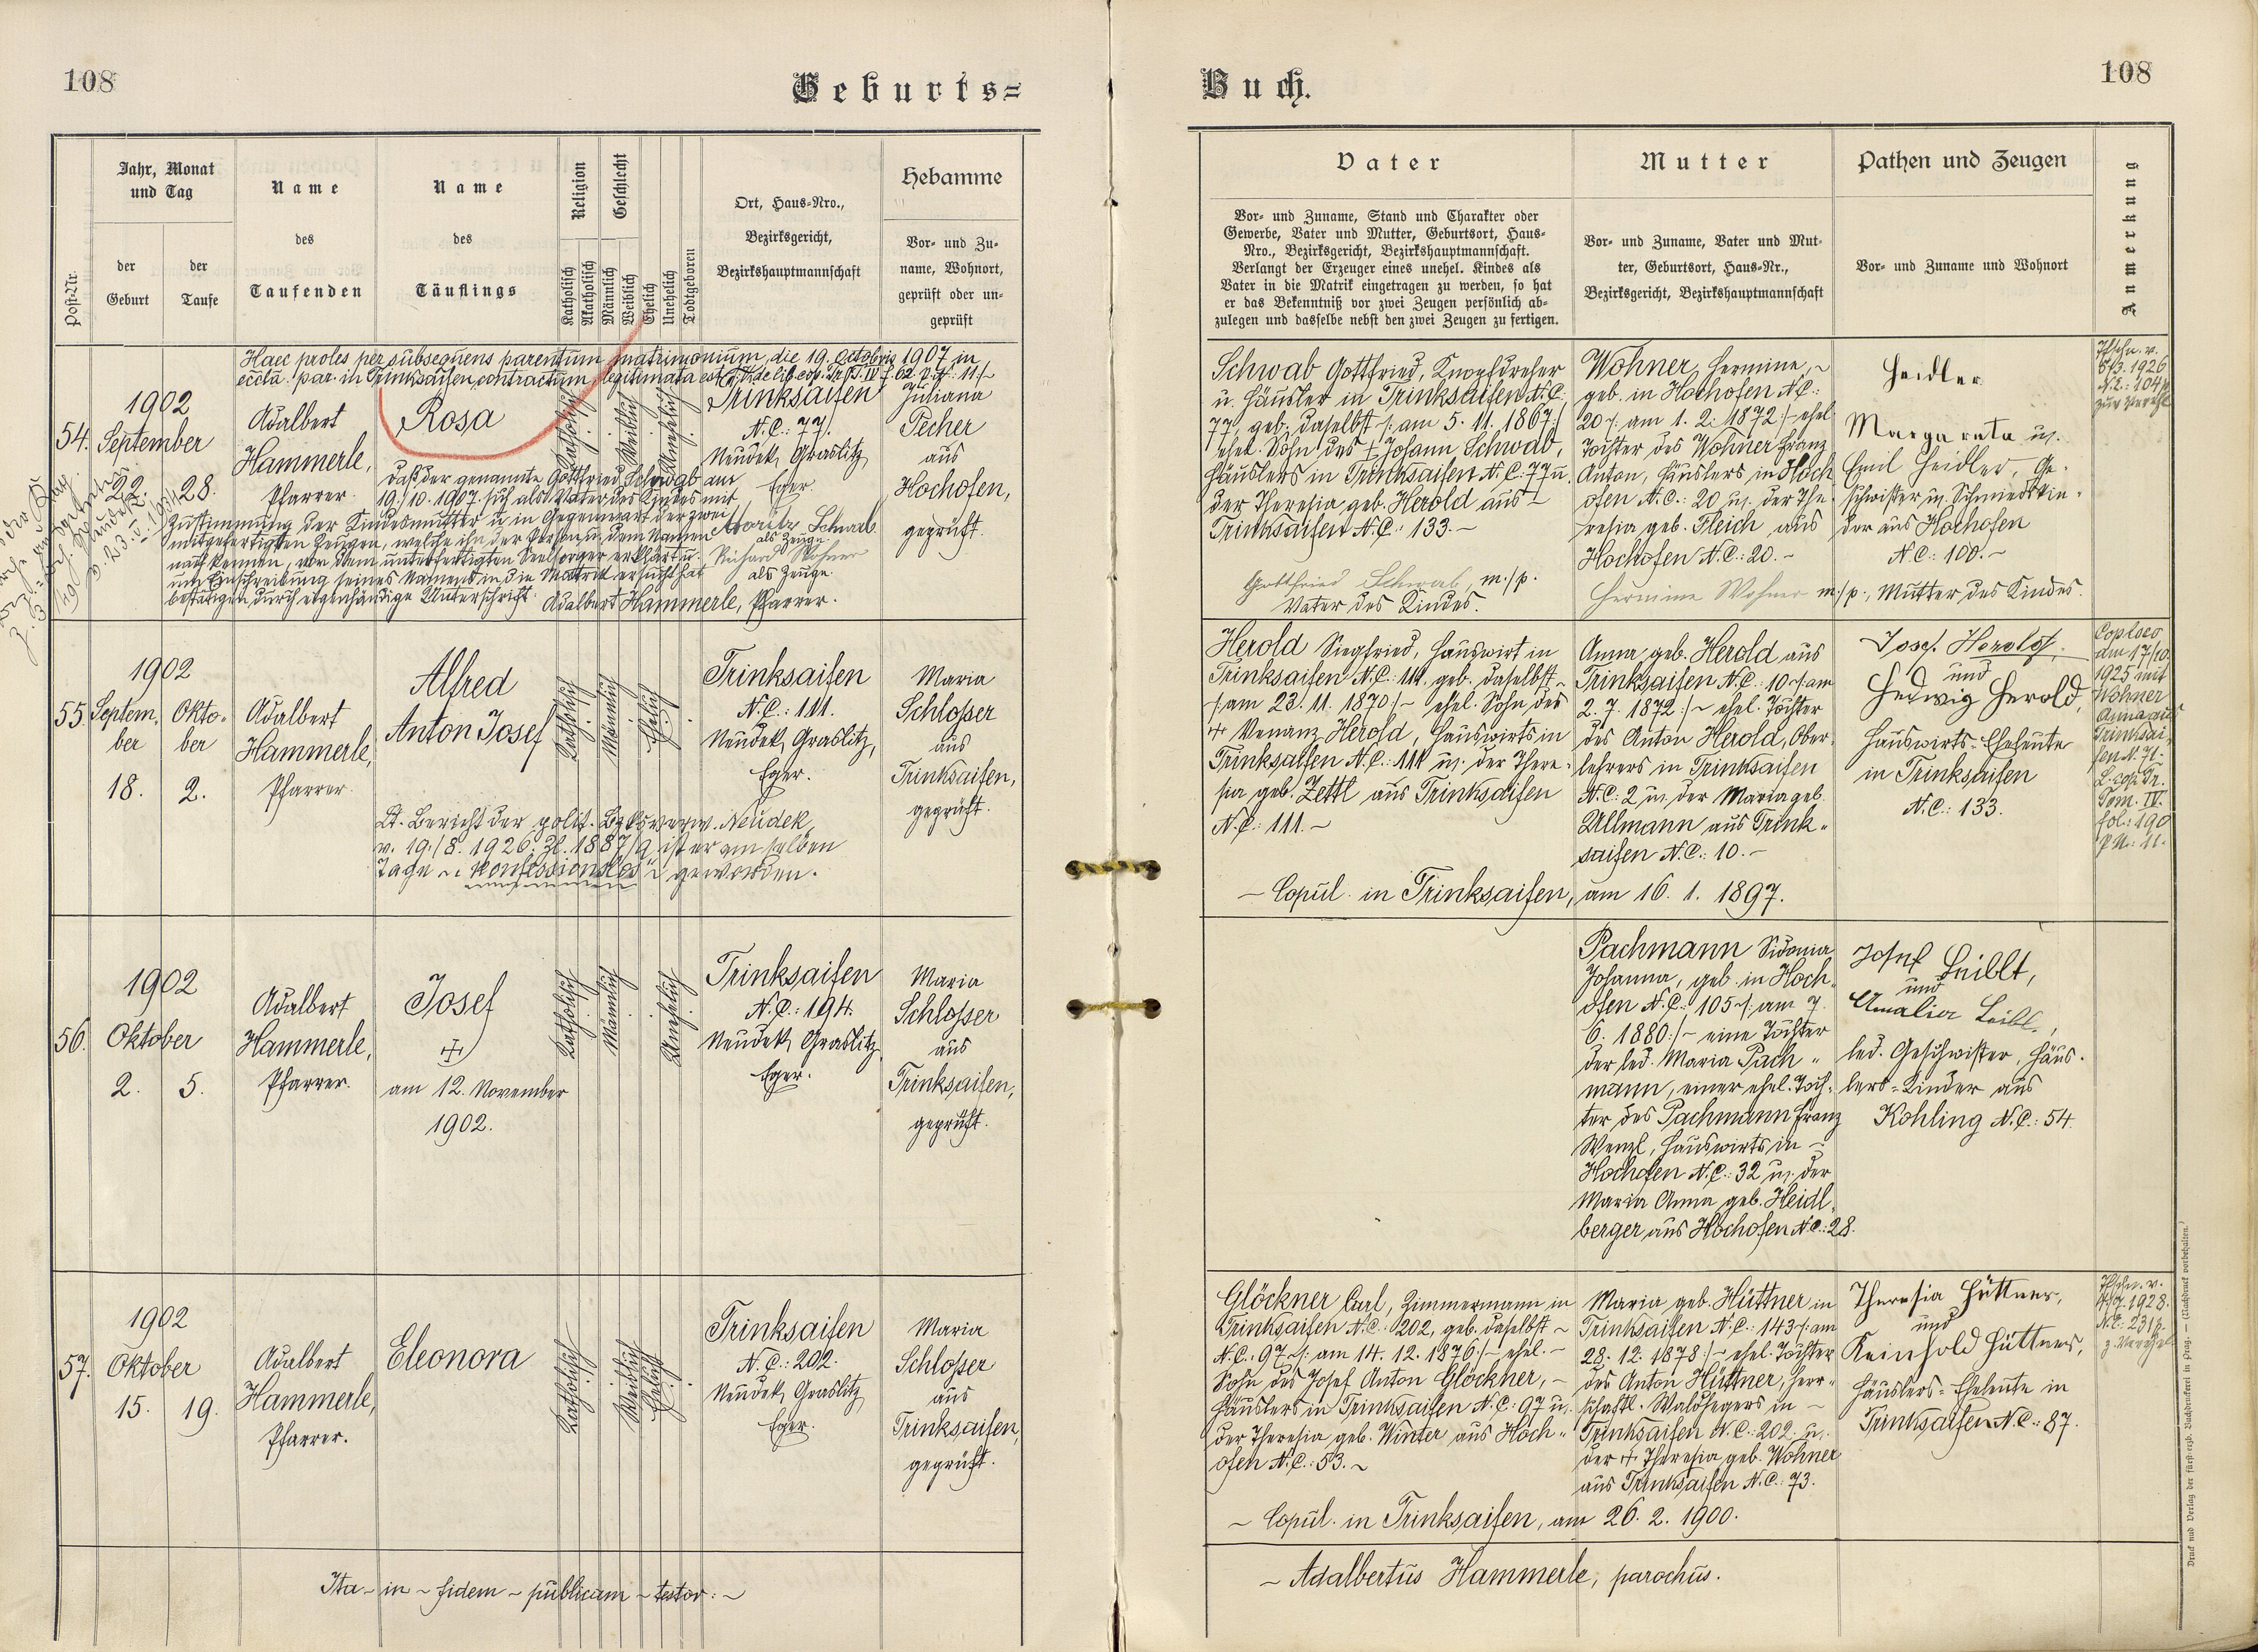 108
Geburts=
Post-Nr.
Jahr, Monat
und Tag
der
Geburt
der
Taufe
Name
des
Taufenden
Name
des
Täuflings
Religion
Katholisch
Akatholisch
Geschlecht
Männlich
Weiblich
Ehelich
Unehelich
Todtgeboren
Ort, Haus-Nro.,
Bezirksgericht,
Bezirkshauptmannschaft
Hebamme
Vor- und Zu-
name, Wohnort,
geprüft oder un-
geprüft
Haec proles per subsequens parentum matrimonium, die 19. octobris 1907 in
eccta. par. in Trinksaifen, contractum, legitimata est
54.
1902
September
22.
28.
Adalbert
Hammerle,
Pfarrer.
Rosa
Katholisch
Weiblich
Unehelich
Trinksaifen
N.C.: 77.
Neudek, Graslitz,
Eger.
Juliana
Pecher
aus
Hochofen,
geprüft.
Daß der genannte Gottfried Schwab am
19./10. 1907 sich als Vater des Kindes mit
Zustimmung der Kindesmutter u. in Gegenwart der zwei
mitgefertigten Zeugen, welche ihn der Person u. dem Namen
nach kennen, vor dem unterfertigten Seelsorger erklärt u.
um Einschreibung seines Namens in die Matrik ersucht hat
bestätigen durch eigenhändige Unterschrift.
Moritz Schwab
als Zeuge
Richard Wohner
als Zeuge.
Adalbert Hammerle, Pfarrer.
55.
1902
Septem-
ber
18.
Okto-
ber
2.
Adalbert
Hammerle,
Pfarrer.
Alfred
Anton Josef
Katholisch
Männlich
Ehelich
Trinksaifen
N.C.: 111.
Neudek, Graslitz,
Eger.
Maria
Schlosser
aus
Trinksaifen,
geprüft.
Lt. Bericht der polit. Bezksverw. Neudek
v. 19./8. 1926. Zl. 1887/9 ist er am selben
Tage "konfessionslos" geworden.
56.
1902
Oktober
2.
5.
Adalbert
Hammerle,
Pfarrer.
Josef
am 12. November
1902.
Katholisch
Männlich
Unehelich
Trinksaifen
N.C.: 194.
Neudek, Graslitz,
Eger.
Maria
Schlosser
aus
Trinksaifen,
geprüft.
57.
1902
Oktober
15.
19.
Adalbert
Hammerle,
Pfarrer.
Eleonora
Katholisch
Weiblich
Ehelich
Trinksaifen
N.C.: 202.
Neudek, Graslitz,
Eger.
Maria
Schlosser
aus
Trinksaifen,
geprüft.
Ita - in - fidem - publicam - testor: -
Buch.
108
Vater
Vor- und Zuname, Stand und Charakter oder
Gewerbe, Vater und Mutter, Geburtsort, Haus-
Nro., Bezirksgericht, Bezirkshauptmannschaft.
Verlangt der Erzeuger eines unehel. Kindes als
Vater in die Matrik eingetragen zu werden, so hat
er das Bekenntniß vor zwei Zeugen persönlich ab-
zulegen und dasselbe nebst den zwei Zeugen zu fertigen.
Mutter
Vor- und Zuname, Vater und Mut-
ter, Geburtsort, Haus-Nr.,
Bezirksgericht, Bezirkshauptmannschaft
Pathen und Zeugen
Vor- und Zuname und Wohnort
Anmerkung
Schwab Gottfried, Knopfdreher
u. Häusler in Trinksaifen N.C.
77, geb. daselbst /: am 5. 11. 1867:/
ehel. Sohn des † Johann Schwab,
Häuslers in Trinksaifen N.C.: 77 u.
der Theresia geb. Herold aus -
Trinksaifen N.C.: 133. -
Gottfried Schwab, m./p.
Vater des Kindes.
Wohner Hermine, -
geb. in Hochofen N.C.:
20 /: am 1. 2. 1872:/ - ehel.
Tochter des Wohner Franz
Anton, Häuslers in Hoch-
ofen N.C.: 20 u. der The-
resia geb. Fleich aus
Hochofen N.C.: 20. -
Hermine Wohner m./p., Mutter des Kindes.
Heidler
Margareta u.
Emil Heidler, Ge-
schwister u. Schmiedkin-
der aus Hochofen
N.C.: 100. -
Herold Siegfried, Hauswirt in
Trinksaifen N.C.: 111. geb. daselbst -
/: am 23. 11. 1870:/ - ehel. Sohn des
† Venanz Herold, Hauswirts in
Trinksaifen N.C.: 111 u. der There-
sia geb. Zettl aus Trinksaifen
N.C.: 111. -
Anna geb. Herold aus
Trinksaifen N.C.: 10 /: am
2. 7. 1872:/ - ehel. Tochter
des Anton Herold, Ober-
lehrers in Trinksaifen
N.C.: 2 u. der Maria geb.
Ullmann aus Trink-
saifen N.C.: 10. -
- Copul. in Trinksaifen, am 16. 1. 1897.
Josef Herold,
und
Hedwig Herold,
Hauswirts-Eheleute
in Trinksaifen
N.C.: 133.
am 17/10.
1925 mit
Wohner
Anna aus
Trinksai-
fen N. 71.
Tom. IV.
fol.: 190
pN.: 11.
Pachmann Sidonia
Johanna, geb. in Hoch-
ofen N.C.: 105 /: am 7.
6. 1880:/ - eine Tochter
der led. Maria Pach-
mann, einer ehel. Toch-
ter des Pachmann Franz
Wenzl, Hauswirts in -
Hochofen N.C.: 32 u. der
Maria Anna geb. Heidl-
berger aus Hochofen N.C.: 28.
Josef Leiblt,
und
Amalia Leibl,
led. Geschwister, Häus-
lers-Kinder aus
Kohling N.C.: 54.
Glöckner Carl, Zimmermann in
Trinksaifen N.C.: 202, geb. daselbst -
N.C.: 97 /: am 14. 12. 1876:/ - ehel. -
Sohn des Josef Anton Glöckner, -
Häuslers in Trinksaifen N.C.: 97 u.
der Theresia geb. Winter aus Hoch-
ofen N.C.: 53. -
Maria geb. Hüttner in
Trinksaifen N.C.: 143 /: am
28. 12. 1878:/ - ehel. Tochter
des Anton Hüttner, herr-
schaftl. Waldhegers in -
Trinksaifen N.C.: 202. u.
der † Theresia geb. Wohner
aus Trinksaifen N.C.: 73.
- Copul. in Trinksaifen, am 26. 2. 1900.
Theresia Hüttner,
und
Reinhold Hüttner,
Häuslers-Eheleute in
Trinksaifen N.C.: 87.
- Adalbertus Hammerle, parochus.
Druck und Verlag der fürst-erzb. Buchdruckerei in Prag. - (Nachdruck vorbehalten.)